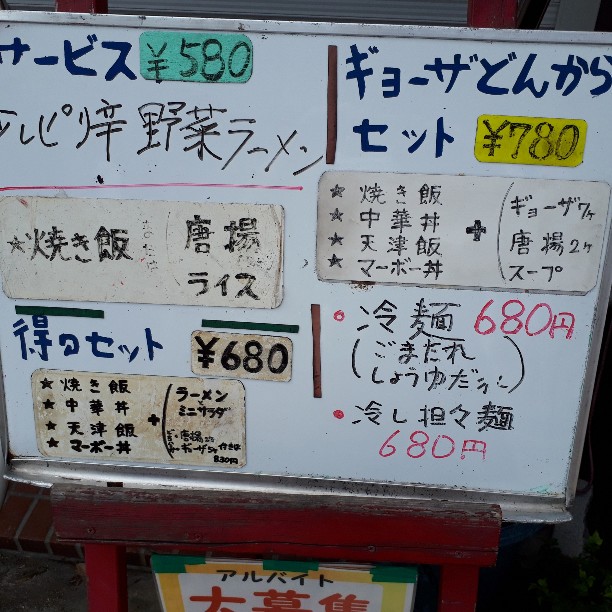 サービス ¥580
ピリ辛 野菜ラーメン
★焼き飯 または 唐揚
ライス
得のセット ¥680
★ 焼き飯
★ 中華丼
★ 天津飯
★ マーボー丼
+
ラーメン
ミニサラダ
830円
ギョーザどんから
セット ¥780
★ 焼き飯
★ 中華丼
★ 天津飯
★ マーボー丼
+
ギョーザ7ヶ
唐揚2ヶ
スープ
• 冷麺 680円
(ごまだれ
しょうゆだれ)
• 冷し担々麺
680円
アルバイト
大募集